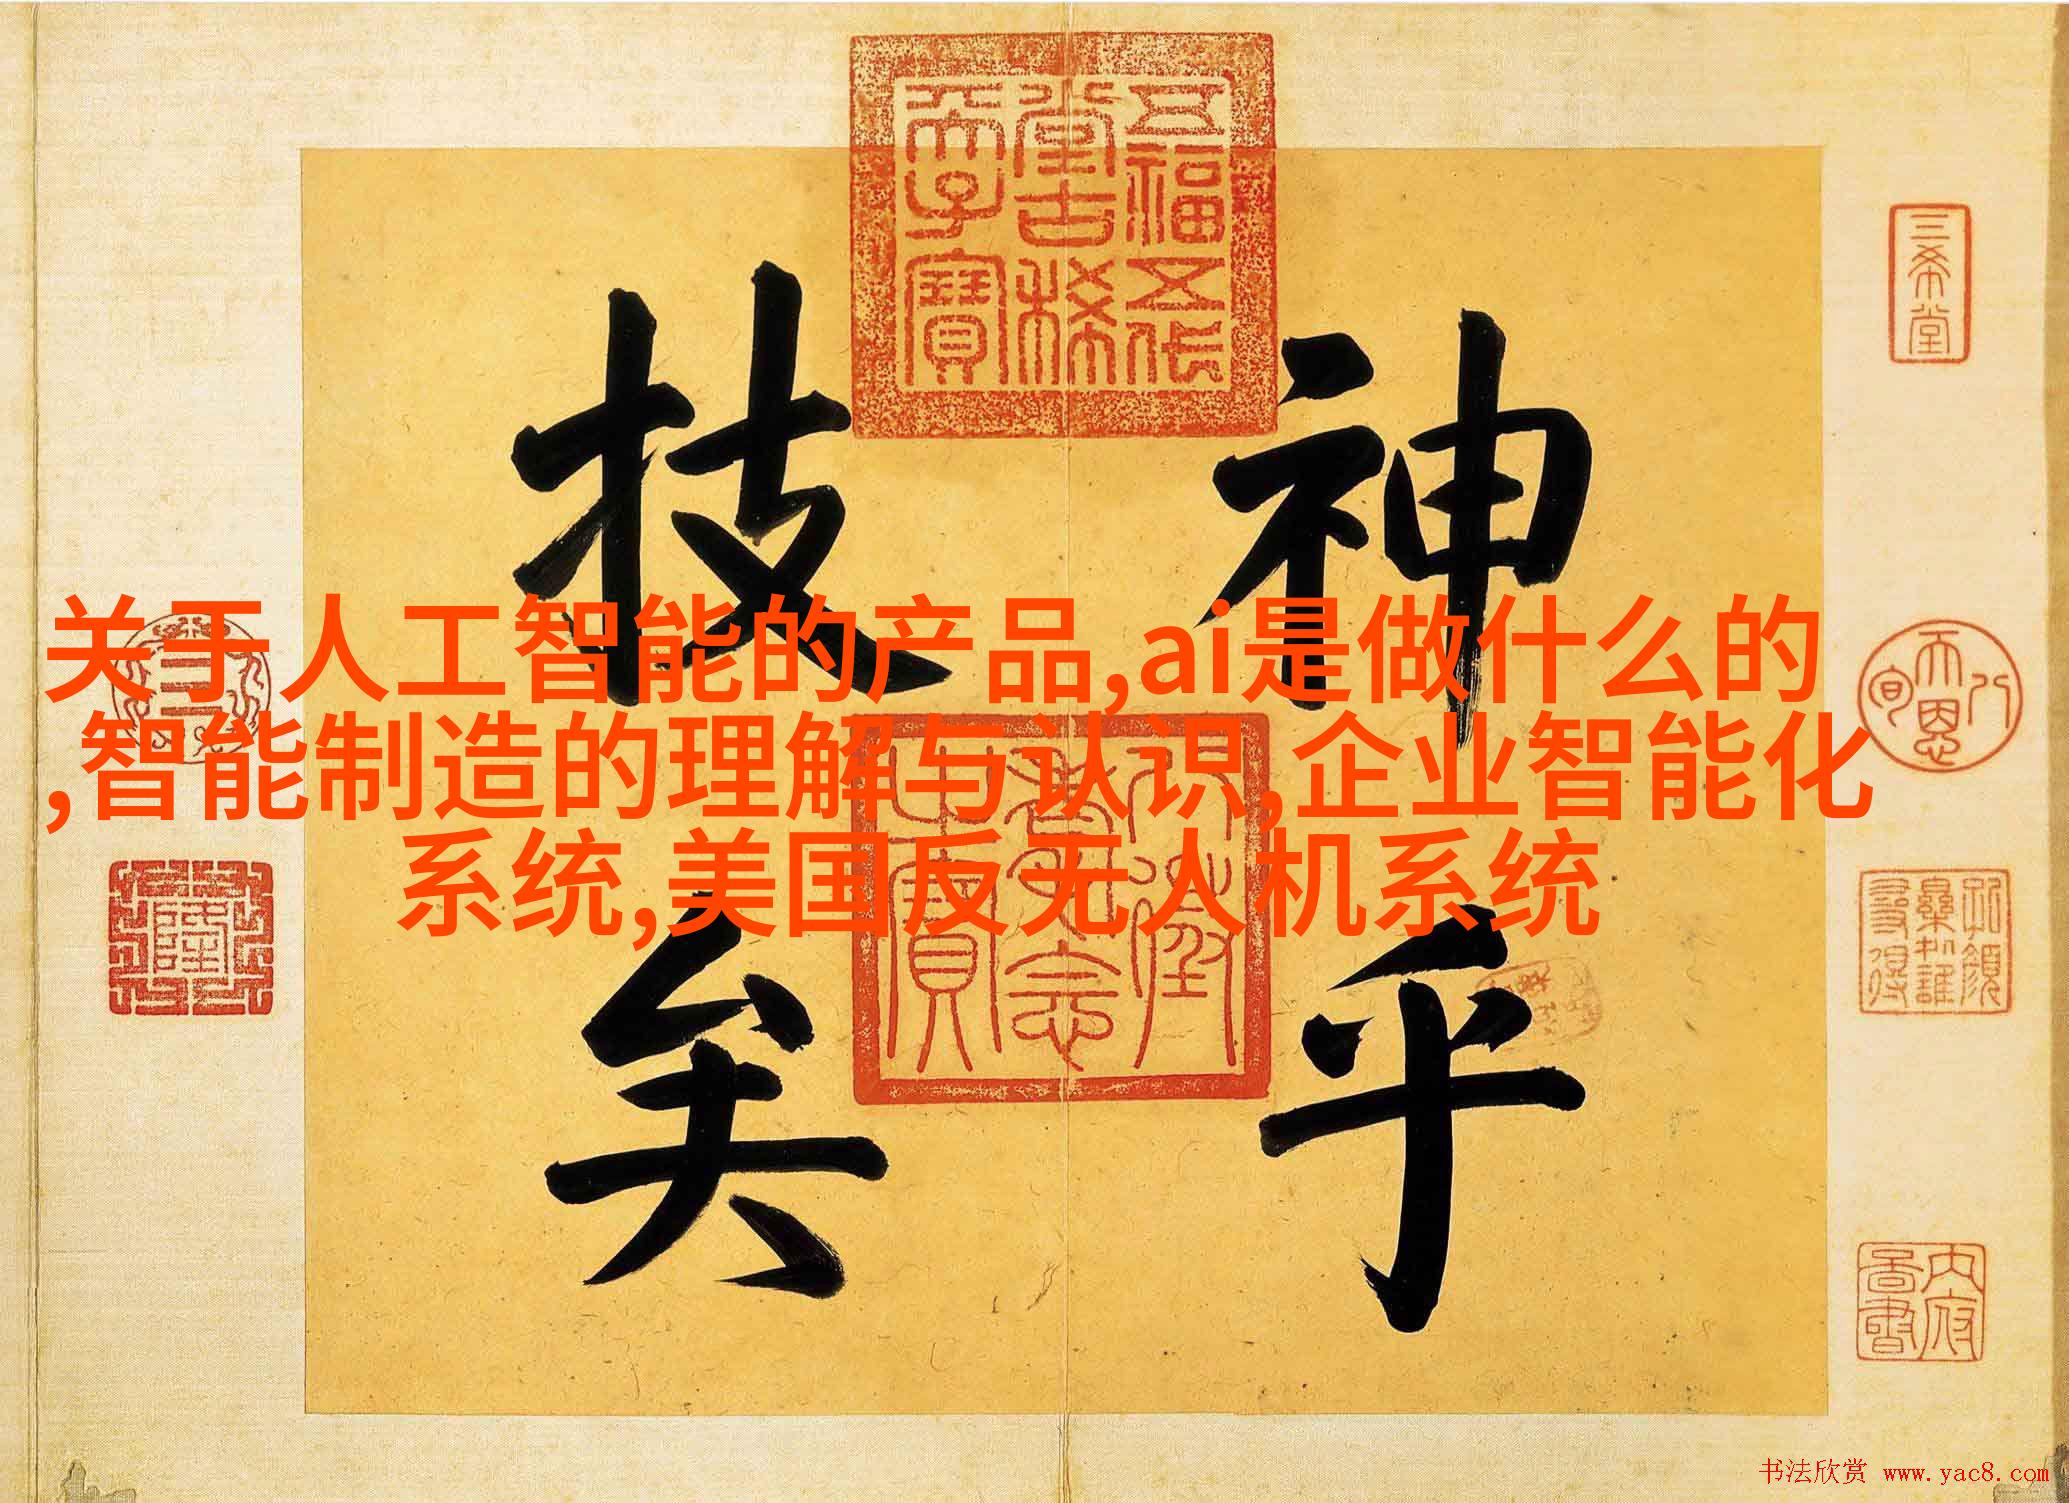 神乎
技矣
关于人工智能的产品,ai是做什么的
,智能制造的理解与认识,企业智能化
系统,美国反无人机系统
五福五代
堂古稀
天子寶
八徵耄念
之寶
三希堂
内府
書法欣赏 www.yac8.com